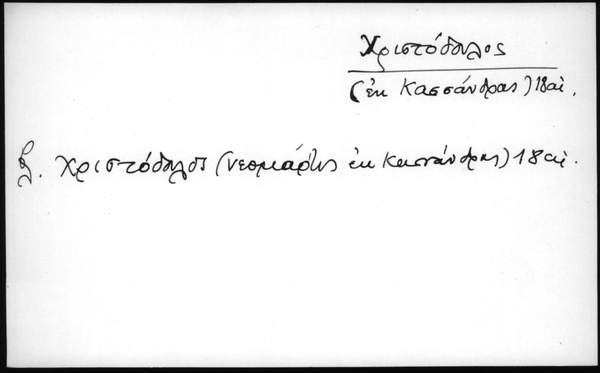 Χριστόδουλος
(ἐκ Κασσάνδρας) 18 αἰ.
βλ. Χριστόδουλος (νεομάρτυς ἐκ Κασσάνδρας) 18 αἰ.